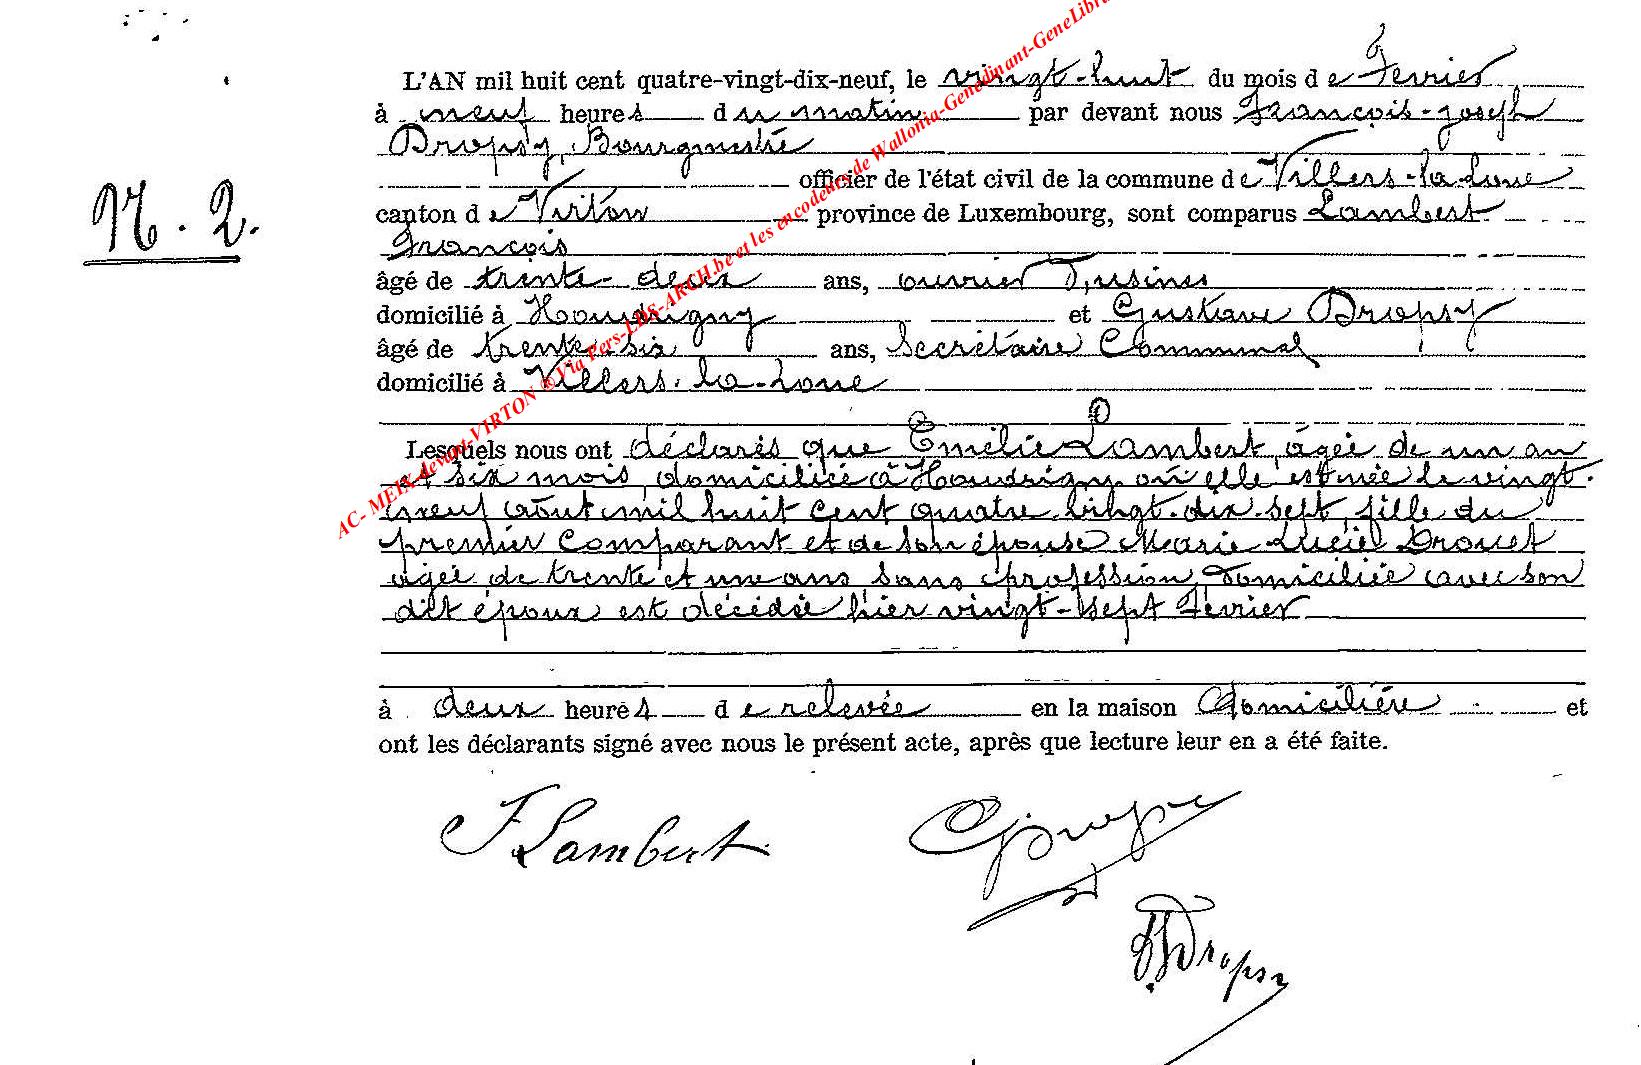 L'AN mil huit cent quatre-vingt-dix-neuf, le vingt-huit du mois de Fevrier
à neuf heures du matin par devant nous François-Joseph
Dropsy, Bourgmestre
officier de l'état civil de la commune de Villers-la-Loue
N. 2.
canton de Virton province de Luxembourg, sont comparus Lambert
François
âgé de trente-deux ans, ouvrier d'usines
domicilié à Houdrigny et Gustave Dropsy
âgé de trente-six ans, Secrétaire Communal
domicilié à Villers-la-Loue
Lesquels nous ont déclarés que Emélie Lambert, âgée de un an
et six mois, domiciliée à Houdrigny où elle est née le vingt-
neuf août mil huit cent quatre-vingt-dix-sept, fille du
premier Comparant et de son épouse Marie Drouet
âgée de trente et une ans sans profession, domiciliée avec son
dit époux est décédée hier vingt-sept Février
à deux heures de relevée en la maison domicilière et
ont les déclarants signé avec nous le présent acte, après que lecture leur en a été faite.
F Lambert
G Dropsy
FJ Dropsy
AC- MEIX-devant-VIRTON ® Via Pers-LDS-ARCH.be et les encodeurs de Wallonia-Genedinant-GeneLibr